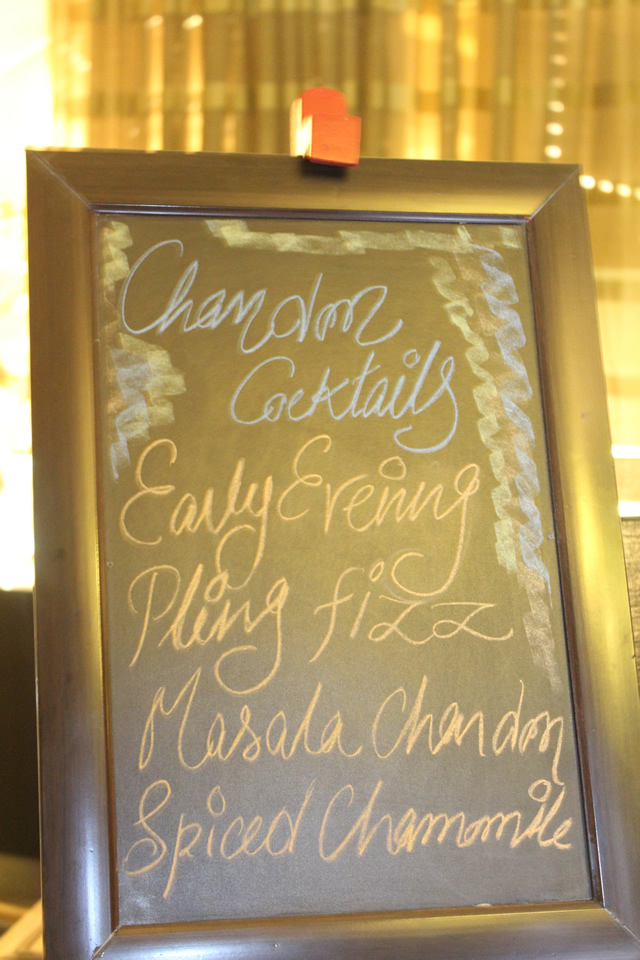 Chandon
Cocktails
Early Evening
Pling fizz
Masala Chandon
Spiced Chamomile